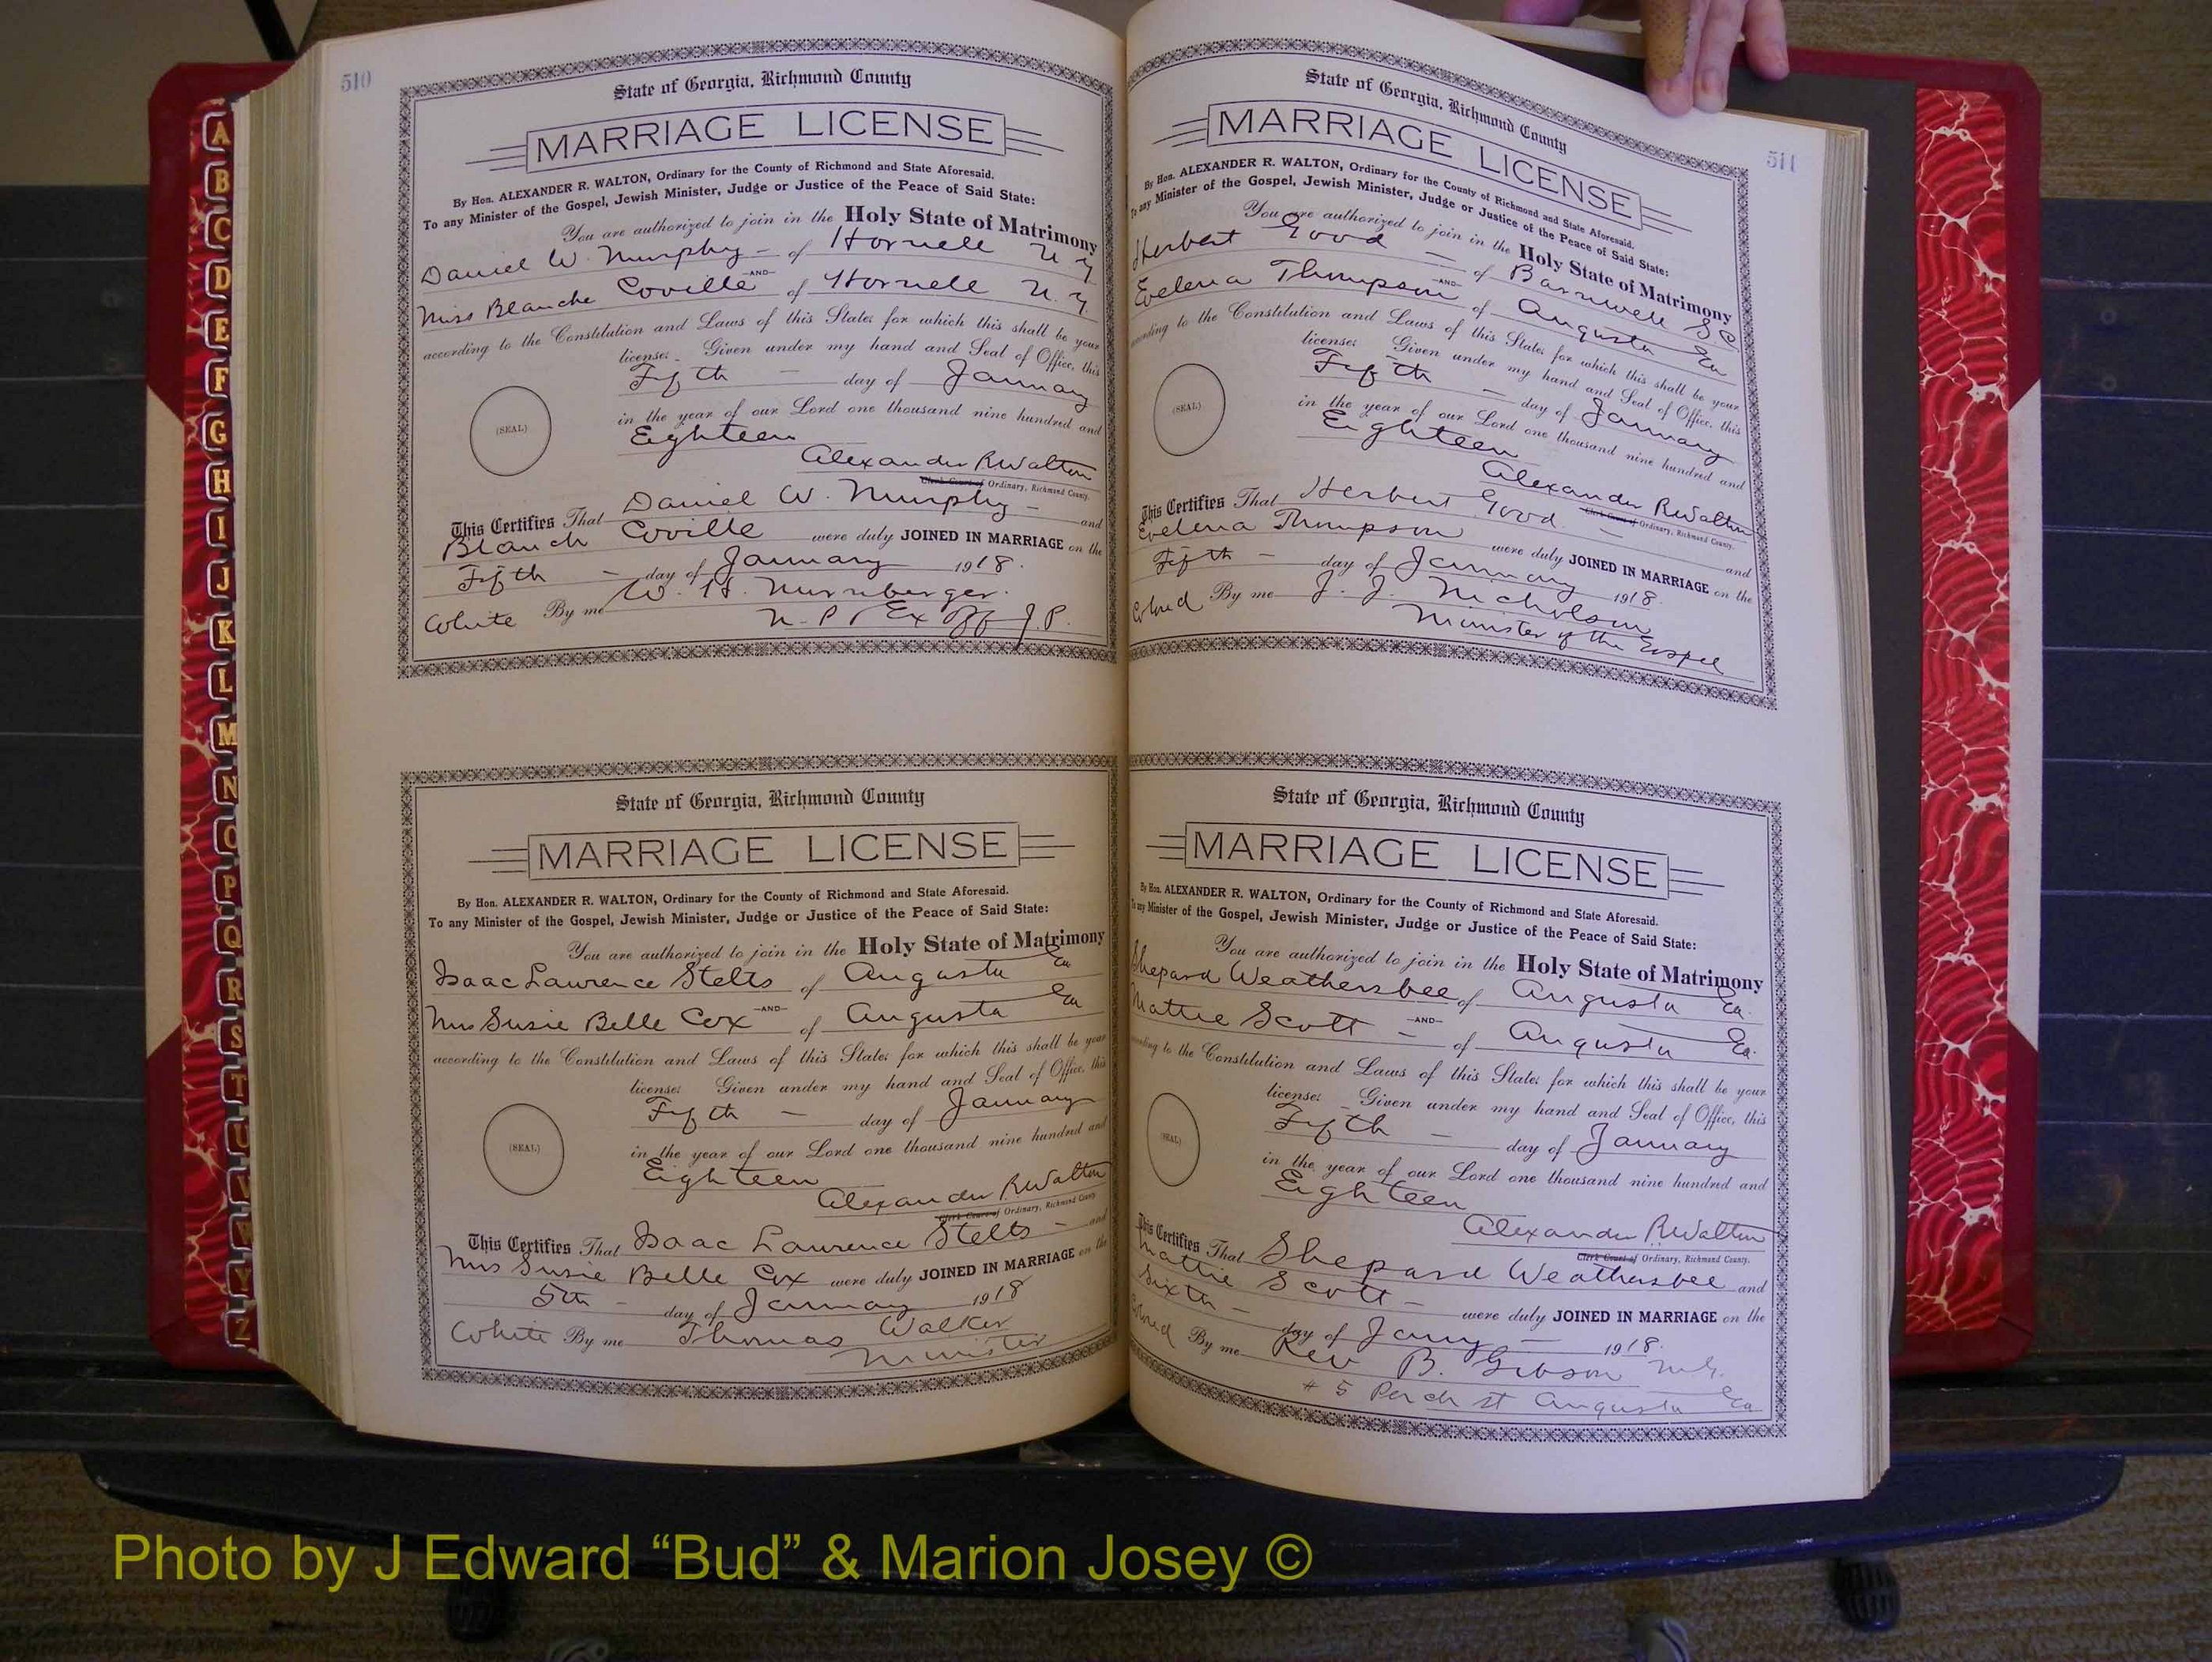 510
State of Georgia, Richmond County
MARRIAGE LICENSE
By Hon. ALEXANDER R. WALTON, Ordinary for the County of Richmond and State Aforesaid.
To any Minister of the Gospel, Jewish Minister, Judge or Justice of the Peace of Said State:
You are authorized to join in the Holy State of Matrimony
Daniel W. Murphy - of Hornell N. Y
-AND-
Miss Blanche Coville of Hornell N. Y.
according to the Constitution and Laws of this State; for which this shall be your
license: Given under my hand and Seal of Office, this
Fifth - day of January
in the year of our Lord one thousand nine hundred and
Eighteen
(SEAL)
Alexander R Walton
Clerk Court of Ordinary, Richmond County.
This Certifies That Daniel W. Murphy - and
Blanch Coville were duly JOINED IN MARRIAGE on the
Fifth - day of January 1918.
White By me W. H. Nurnburger.
N. P. & Ex Off J. P.
State of Georgia, Richmond County
MARRIAGE LICENSE
By Hon. ALEXANDER R. WALTON, Ordinary for the County of Richmond and State Aforesaid.
To any Minister of the Gospel, Jewish Minister, Judge or Justice of the Peace of Said State:
You are authorized to join in the Holy State of Matrimony
Isaac Lawrence Stelts of Augusta Ga
-AND-
Mrs Susie Belle Cox of Augusta Ga
according to the Constitution and Laws of this State; for which this shall be your
license: Given under my hand and Seal of Office, this
Fifth - day of January
in the year of our Lord one thousand nine hundred and
Eighteen
(SEAL)
Alexander R Walton
Clerk Court of Ordinary, Richmond County
This Certifies That Isaac Lawrence Stelts - and
Mrs Susie Belle Cox were duly JOINED IN MARRIAGE on the
5th - day of January 1918
White By me Thomas Walker
Minister
511
State of Georgia, Richmond County
MARRIAGE LICENSE
By Hon. ALEXANDER R. WALTON, Ordinary for the County of Richmond and State Aforesaid.
To any Minister of the Gospel, Jewish Minister, Judge or Justice of the Peace of Said State:
You are authorized to join in the Holy State of Matrimony
Herbert Good - of Barnwell S. C
-AND-
Evelena Thompson of Augusta Ga
according to the Constitution and Laws of this State; for which this shall be your
license: Given under my hand and Seal of Office, this
Fifth - day of January
in the year of our Lord one thousand nine hundred and
Eighteen
(SEAL)
Alexander R Walton
Clerk Court of Ordinary, Richmond County.
This Certifies That Herbert Good - and
Evelena Thompson were duly JOINED IN MARRIAGE on the
Fifth - day of January 1918.
Colored By me J. J. Nicholson
Minister of the Gospel
State of Georgia, Richmond County
MARRIAGE LICENSE
By Hon. ALEXANDER R. WALTON, Ordinary for the County of Richmond and State Aforesaid.
To any Minister of the Gospel, Jewish Minister, Judge or Justice of the Peace of Said State:
You are authorized to join in the Holy State of Matrimony
Shepard Weathersbee of Augusta Ga.
-AND-
Mattie Scott - of Augusta Ga.
according to the Constitution and Laws of this State; for which this shall be your
license: Given under my hand and Seal of Office, this
Fifth - day of January
in the year of our Lord one thousand nine hundred and
Eighteen
(SEAL)
Alexander R Walton
Clerk Court of Ordinary, Richmond County.
This Certifies That Shepard Weathersbee and
Mattie Scott - were duly JOINED IN MARRIAGE on the
Sixth - day of Jany - 1918.
Colored By me Rev B. Gibson M. G.
# 5 Perch st Augusta Ga
A
B
C
D
E
F
G
H
I
J
K
L
M
N
O
P
Q
R
S
T
U
V
W
Y
Z
Photo by J Edward “Bud” & Marion Josey ©